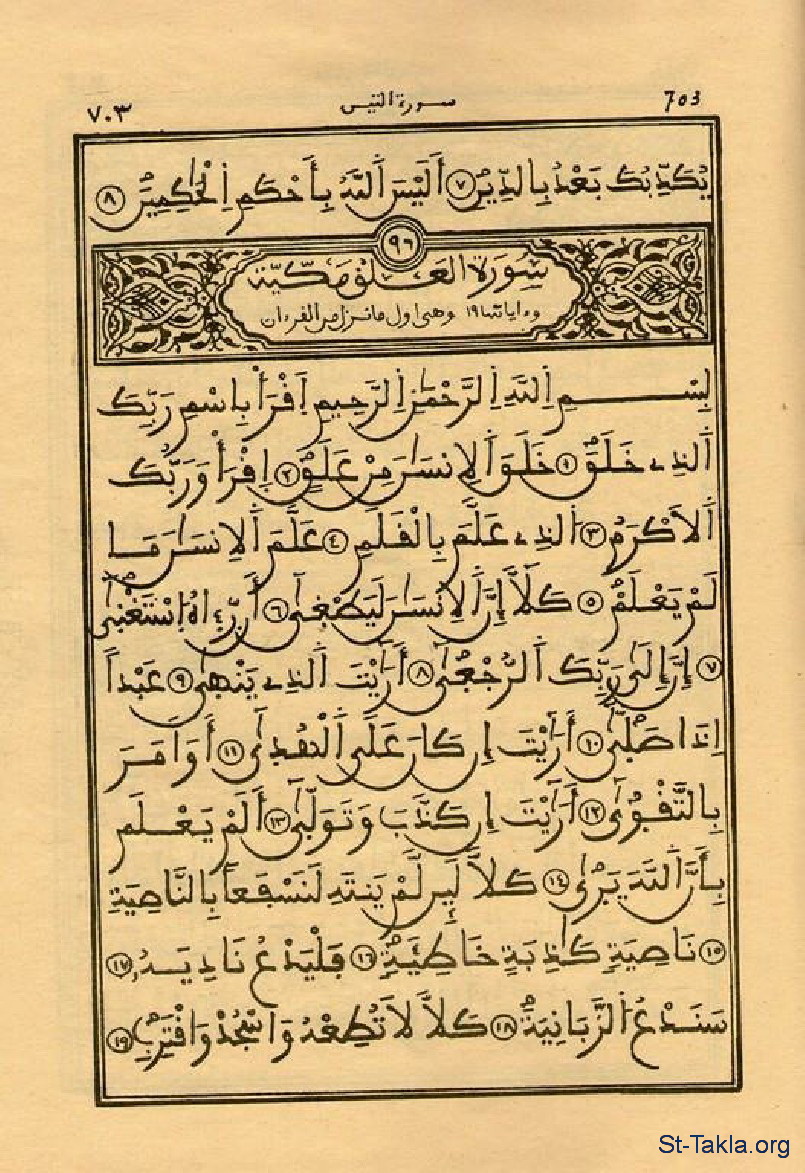 703 سورة التين ٧٠٣
يُكَذِّبُكَ بَعْدُ بِالدِّينِ ٧ أَلَيْسَ اَللَّهُ بِأَحْكَمِ اِلْحَٰكِمِينَ ٨
٩٦
سُورَةُ الْعَلَقِ مَكِّيَّة
وءاياتها ١٩ وهى اول ما نزل من القرءان
بِسْمِ اِللَّهِ اِلرَّحْمَٰنِ اِلرَّحِيمِ اِقْرَأْ بِاسْمِ رَبِّكَ
اَلذِے خَلَقَ ١ خَلَقَ اَلِانسَٰنَ مِنْ عَلَقٍ ٢ اِقْرَأْ وَرَبُّكَ
اَلَاكْرَمُ ٣ اَلذِے عَلَّمَ بِالْقَلَمِ ٤ عَلَّمَ اَلِانسَٰنَ مَا
لَمْ يَعْلَمْ ٥ كَلَّا إِنَّ اَلِانسَٰنَ لَيَطْغَىٰ ٦ أَن رَّءَاهُ اُسْتَغْنَىٰ
٧ إِنَّ إِلَىٰ رَبِّكَ اَلرُّجْعَىٰ ٨ أَرَٰيْتَ اَلذِے يَنْهَىٰ ٩ عَبْداً
اِذَا صَلَّىٰ ١٠ أَرَٰيْتَ إِن كَانَ عَلَى اَلْهُدَىٰ ١١ أَوَ اَمَرَ
بِالتَّقْوَىٰ ١٢ أَرَٰيْتَ إِن كَذَّبَ وَتَوَلَّىٰ ١٣ أَلَمْ يَعْلَم
بِأَنَّ اَللَّهَ يَرَىٰ ١٤ كَلَّا لَئِن لَّمْ يَنتَهِ لَنَسْفَعاً بِالنَّاصِيَةِ
١٥ نَاصِيَةٍ كَٰذِبَةٍ خَاطِئَةٍ ١٦ فَلْيَدْعُ نَادِيَهُ ١٧
سَنَدْعُ اُلزَّبَانِيَةَ ١٨ كَلَّا لَا تُطِعْهُ وَاسْجُدْ وَاقْتَرِب ١٩
St-Takla.org